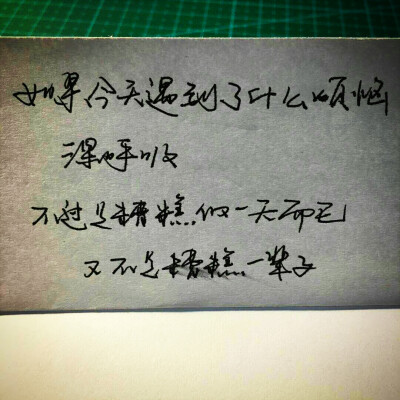 如果今天遇到了什么烦恼
深呼吸
不过是糟糕的一天而已
又不是糟糕一辈子